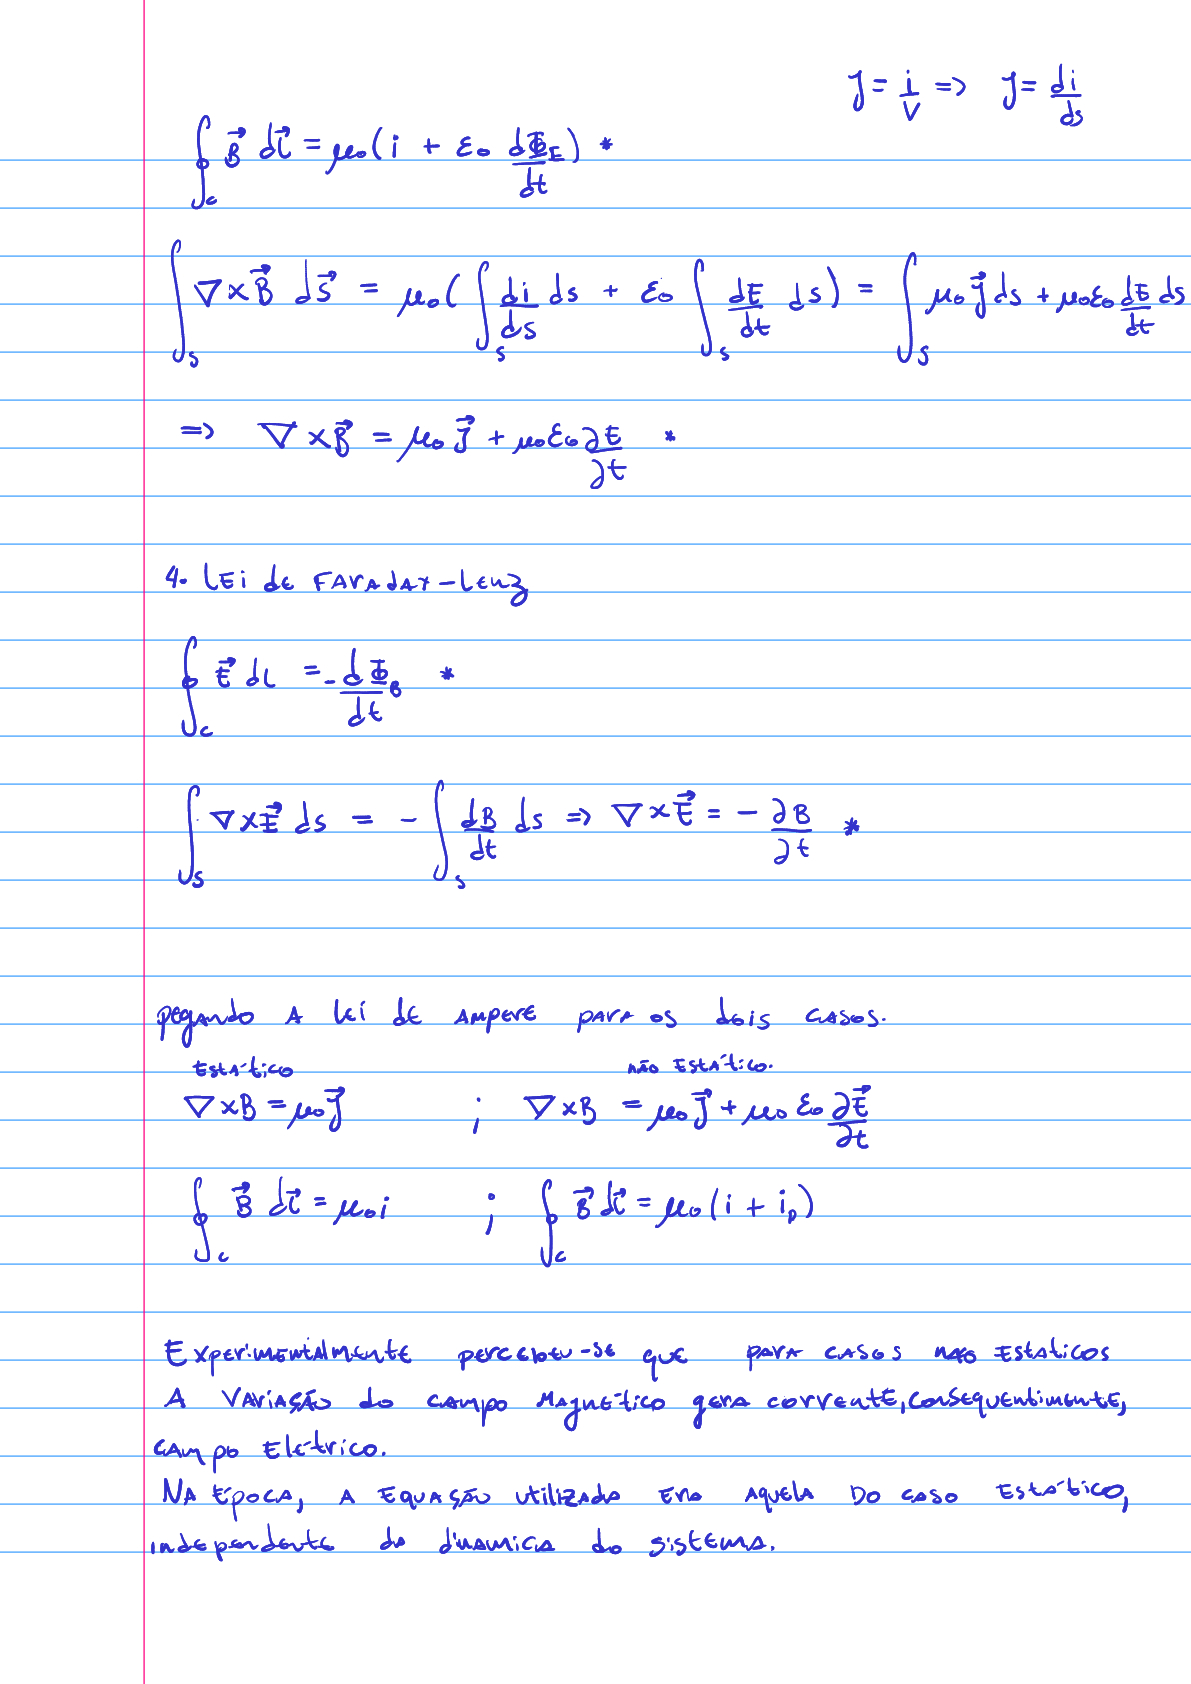 J = i/V => J = di/ds
∮_c B⃗ dl⃗ = μ₀(i + ε₀ dΦ_E/dt) *
∫_s ∇×B⃗ ds⃗ = μ₀(∫_s di/ds ds + ε₀ ∫_s dE/dt ds) = ∫_s μ₀J⃗ ds + μ₀ε₀ dE/dt ds
=> ∇×B⃗ = μ₀J⃗ + μ₀ε₀ ∂E/∂t *
4. Lei de Faraday-Lenz
∮_c E⃗ dl = -dΦ_B/dt *
∫_s ∇×E⃗ ds = -∫_s dB/dt ds => ∇×E⃗ = -∂B/∂t *
pegando a lei de ampere para os dois casos.
Estático não Estático.
∇×B = μ₀J⃗ ; ∇×B = μ₀J⃗ + μ₀ε₀ ∂E⃗/∂t
∮_c B⃗ dl⃗ = μ₀i ; ∮_c B⃗ dl⃗ = μ₀(i + i_D)
Experimentalmente percebeu-se que para casos não estáticos
A variação do campo magnético gera corrente, consequentimente,
campo elétrico.
Na época, a equação utilizada era aquela do caso estático,
independente da dinamica do sistema.